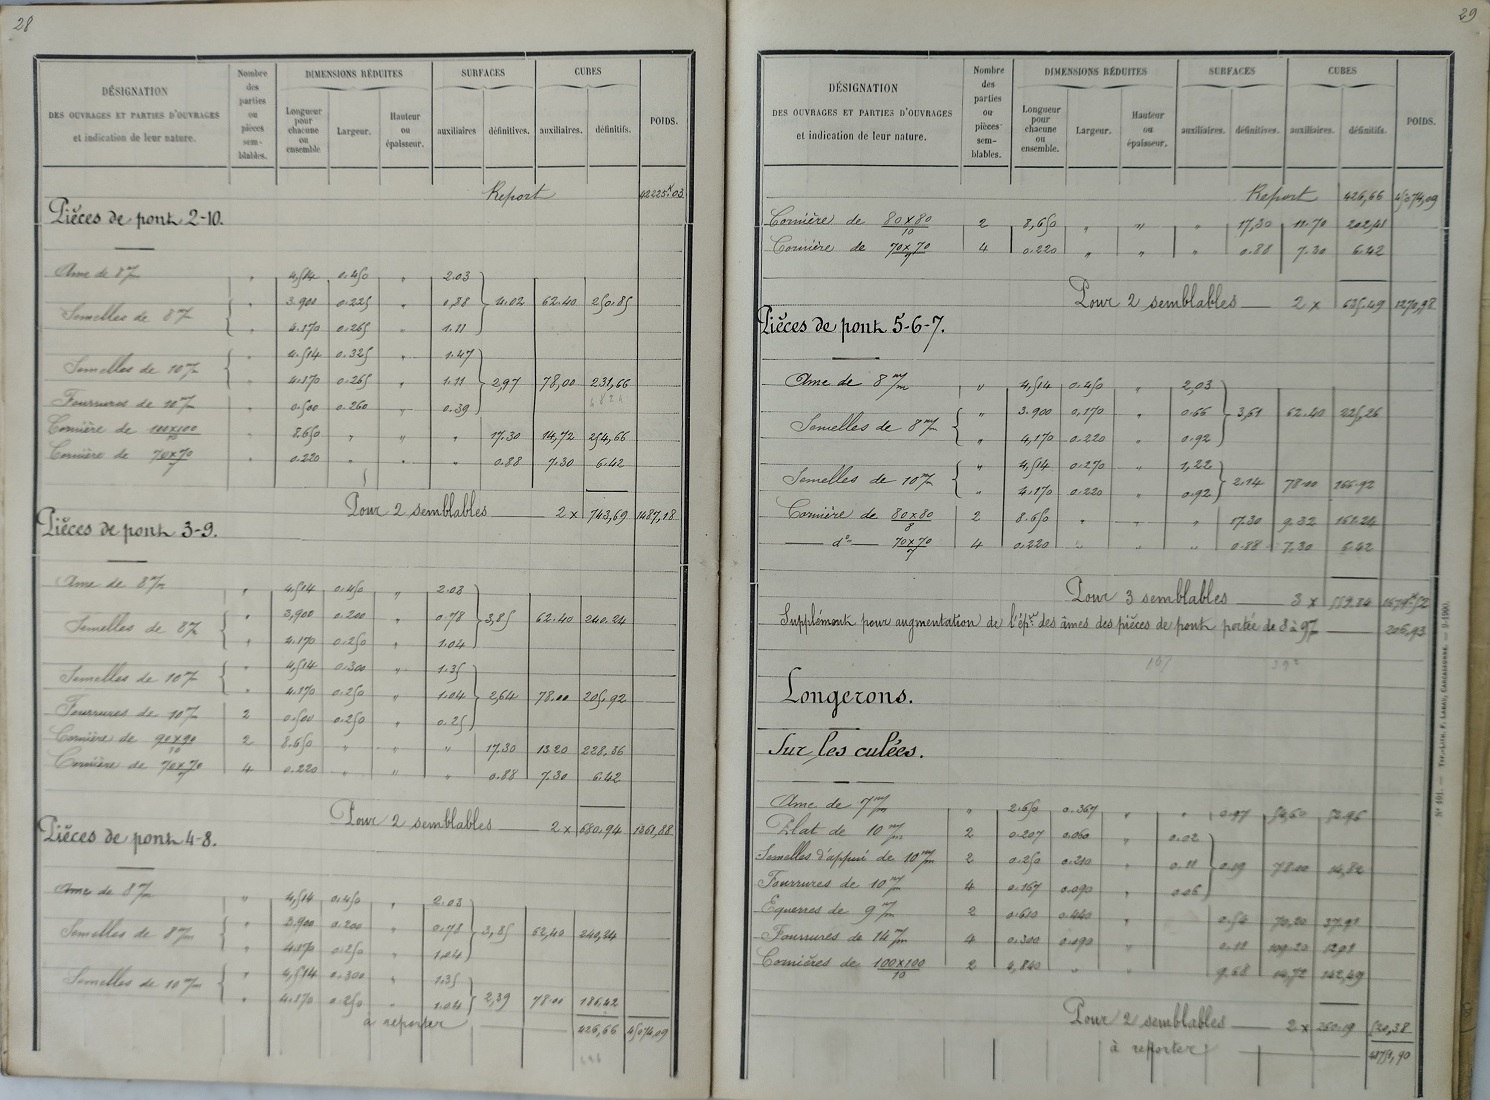 28
DÉSIGNATION
DES OUVRAGES ET PARTIES D'OUVRAGES
et indication de leur nature.
Nombre des parties ou pièces sem-blables.
DIMENSIONS RÉDUITES
Longueur pour chacune ou ensemble
Largeur.
Hauteur ou épaisseur.
SURFACES
auxiliaires.
définitives.
CUBES
auxiliaires.
définitifs.
POIDS.
Report 42225K03
Pièces de pont 2-10.
Ame de 8m/m " 4,514 0.450 " 2.03
Semelles de 8m/m " 3.900 0.225 " 0,88 4.02 62.40 250.85
" 4.170 0.265 " 1.11
Semelles de 10m/m 4.514 0.325 " 1.47
" 4.170 0.265 " 1.11 2,97 78,00 231,66
Fourrures de 10m/m " 0.500 0.260 " 0.39
Cornière de 100x100/10 8.650 " " " 17.30 14,72 254,66
Cornière de 70x70/7 " 0.220 " " " 0.88 7.30 6.42
Pour 2 semblables 2 x 743,69 1487,18
Pièces de pont 3-9.
Ame de 8m/m " 4,514 0.450 " 2.03
Semelles de 8m/m " 3,900 0.200 " 0.78 3,85 62.40 240.24
" 4.170 0.250 " 1.04
Semelles de 10m/m " 4,514 0.300 " 1.35
" 4.170 0.250 " 1.04 2,64 78.00 205.92
Fourrures de 10m/m 2 0.500 0.250 " 0.25
Cornière de 90x90/10 2 8.650 " " " 17.30 13.20 228.36
Cornière de 70x70/7 4 0.220 " " " 0.88 7.30 6.42
Pour 2 semblables 2 x 680.94 1361,88
Pièces de pont 4-8.
Ame de 8m/m " 4,514 0.450 " 2.03
Semelles de 8m/m " 3.900 0.200 " 0.78 3,85 62,40 240,24
" 4.170 0.250 " 1.04
Semelles de 10m/m " 4,514 0.300 " 1.35
" 4.170 0.250 " 1.04 2,39 78.00 186.42
à reporter 426,66 45074,09
29
DÉSIGNATION
DES OUVRAGES ET PARTIES D'OUVRAGES
et indication de leur nature.
Nombre des parties ou pièces sem-blables.
DIMENSIONS RÉDUITES
Longueur pour chacune ou ensemble.
Largeur.
Hauteur ou épaisseur.
SURFACES
auxiliaires.
définitives.
CUBES
auxiliaires.
définitifs.
POIDS.
Report 426,66 45074,09
Cornière de 80x80/10 2 8,650 " " " 17,30 11.70 202,41
Cornière de 70x70/7 4 0.220 " " " 0.88 7.30 6.42
Pour 2 semblables 2 x 635.49 1270,98
Pièces de pont 5-6-7.
Ame de 8m/m " 4,514 0.450 " 2,03
Semelles de 8m/m " 3.900 0.170 " 0.66 3,61 62.40 225,26
" 4,170 0.220 " 0.92
Semelles de 10m/m " 4,514 0.270 " 1,22
" 4.170 0.220 " 0.92 2.14 78.00 166.92
Cornière de 80x80/8 2 8.650 " " " 17.30 9.32 161.24
do 70x70/7 4 0.220 " " " 0.88 7.30 6.42
Pour 3 semblables 3 x 559.84 1679K52
Supplément pour augmentation de l'épr des âmes des pièces de pont portée de 8 à 9m/m 206,93
Longerons.
Sur les culées.
Ame de 7m/m " 2.650 0.367 " " 0.97 54,60 52.96
Plat de 10m/m 2 0.207 0.060 " 0.02
Semelles d'appui de 10m/m 2 0.250 0.210 " 0.11 0.19 78.00 14,82
Fourrures de 10m/m 4 0.167 0.090 " 0.06
Equerres de 9m/m 2 0.610 0.440 " 0.54 70,20 37.91
Fourrures de 14m/m 4 0.300 0.090 " 0.11 109.20 12,01
Cornières de 100x100/10 2 4,840 " " 9.68 14,72 142,49
Pour 2 semblables 2 x 260.19 520,38
à reporter
N° 491. — TYP.-LITH. F. LABAU, CARCASSONNE. — 9-1900.